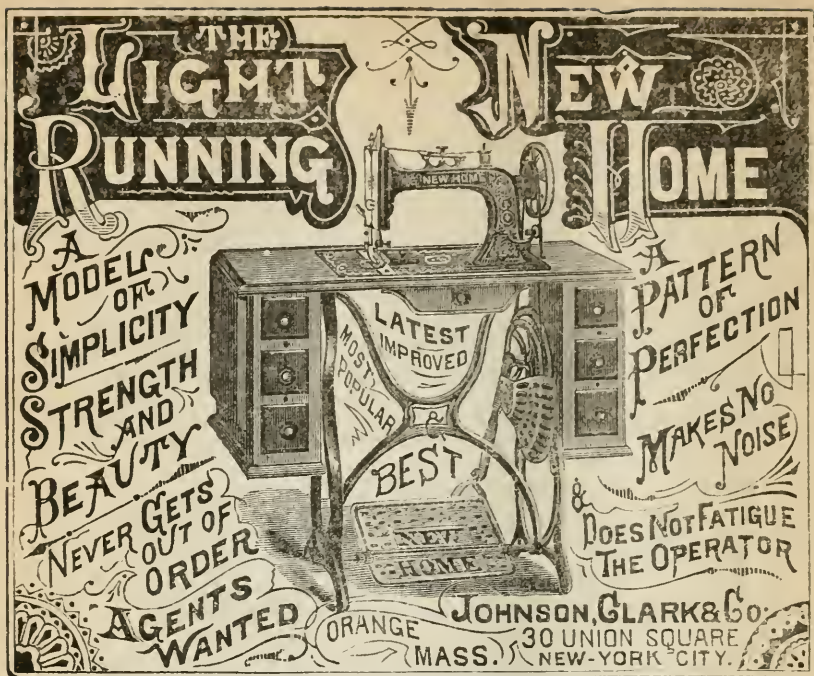 THE
LIGHT
RUNNING
NEW
HOME
NEW HOME
A
MODEL
OF
SIMPLICITY
STRENGTH
AND
BEAUTY
NEVER GETS
OUT OF
ORDER
AGENTS
WANTED
LATEST
IMPROVED
MOST
POPULAR
BEST
NEW
HOME
A
PATTERN
OF
PERFECTION
MAKES NO
NOISE
&
DOES NOT FATIGUE
THE OPERATOR
ORANGE
MASS.
JOHNSON, CLARK & CO.
30 UNION SQUARE
NEW-YORK CITY.